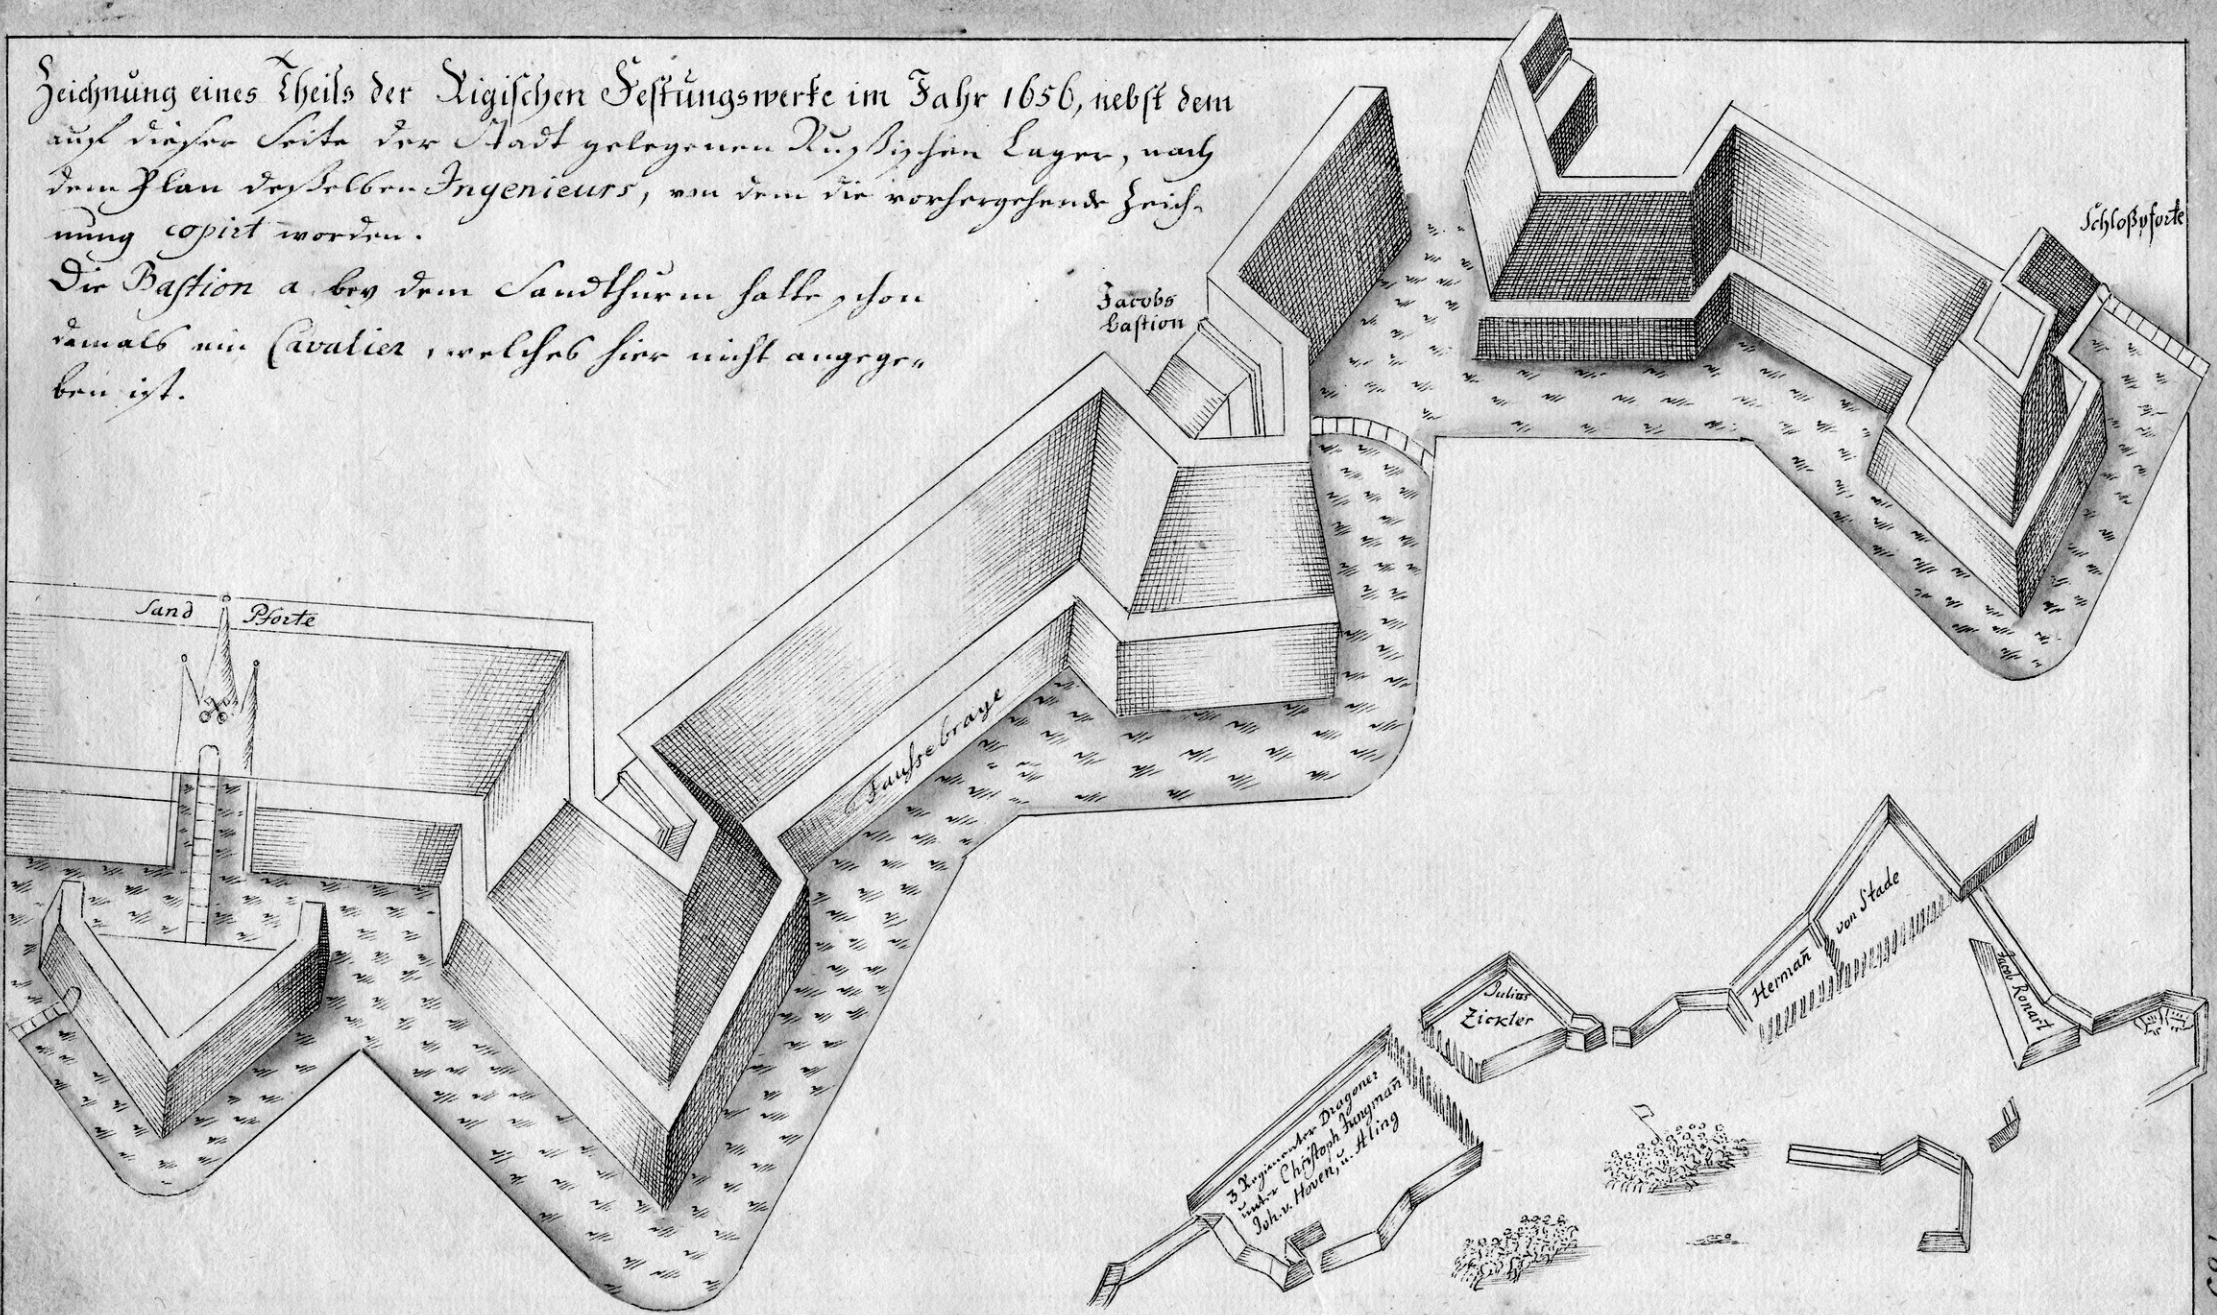 Zeichnung eines Theils der Rigischen Festungswerke im Jahr 1656, nebst dem
auf dieser Seite der Stadt gelegenen Rußischen Lager, nach
dem Plan desselben Ingenieurs, von dem die vorhergehende Zeich-
nung copirt worden.
Die Bastion a bey dem Sandthurm hatte schon
damals ein Cavalier, welches hier nicht angege-
ben ist.
Schloßpforte
Jacobs
bastion
Sand Pforte
Faussebraye
von Stade
Hermañ
Jacob Ronart
Julius
Zickler
3 Regimenter Dragoner
unter Christoph Jungmañ
Joh. v. Hoven, u. Aling